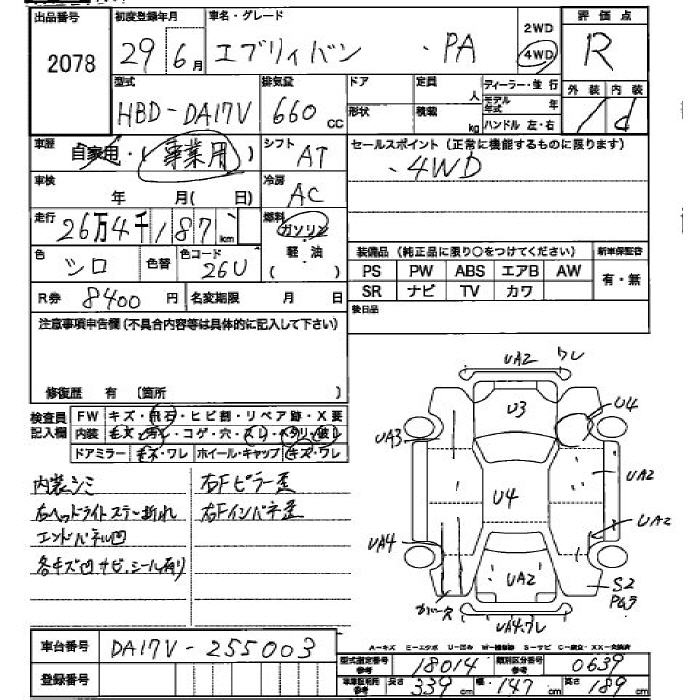 出品番号 初度登録年月 車名・グレード 2WD 評価点
2078 29年6月 エブリィバン ・PA 4WD R
型式 排気量 ドア 定員 人 ディーラー・並行 外装 内装
HBD-DA17V 660 cc 形状 積載 kg モデル年式 年 ハンドル 左・右 / d
車歴 自家用・(事業用) シフト AT セールスポイント (正常に機能するものに限ります)
車検 年 月(日) 冷房 AC ・4WD
走行 26万4千187 km 燃料 ガソリン
色 シロ 色替 色コード 26U 軽・油 ( )
装備品 (純正品に限り〇をつけてください) 新車保証書
PS PW ABS エアB AW 有・無
SR ナビ TV カワ
R券 8400円 名変期限 月 日 後日品
注意事項申告欄 (不具合内容等は具体的に記入して下さい)
修復歴 有 〔箇所 〕
検査員記入欄 FW キズ・飛石・ヒビ割・リペア跡・X要
内装 キズ・汚レ・コゲ・穴・スレ・ヘタリ・破レ
ドアミラー キズ・ワレ ホイール・キャップ キズ・ワレ
内装シミ 右Fピラー歪
右ヘッドライトステー折れ 右Fインパネ歪
エンドパネル凹
各キズ凹サビ、シール有り
UA2 ワレ
U3 U4
UA3
UA2
U4
UA2
UA4
UA2
S2
カバー欠
UA4.ワレ
A-キズ E-エクボ U-凹み W-補修跡 S-サビ C-腐食 XX-交換済
車台番号 DA17V-255003
型式指定番号 参考 18014 類別区分番号 参考 0639
登録番号 車庫証明用 参考 長さ 339 cm 幅 147 cm 高さ 189 cm